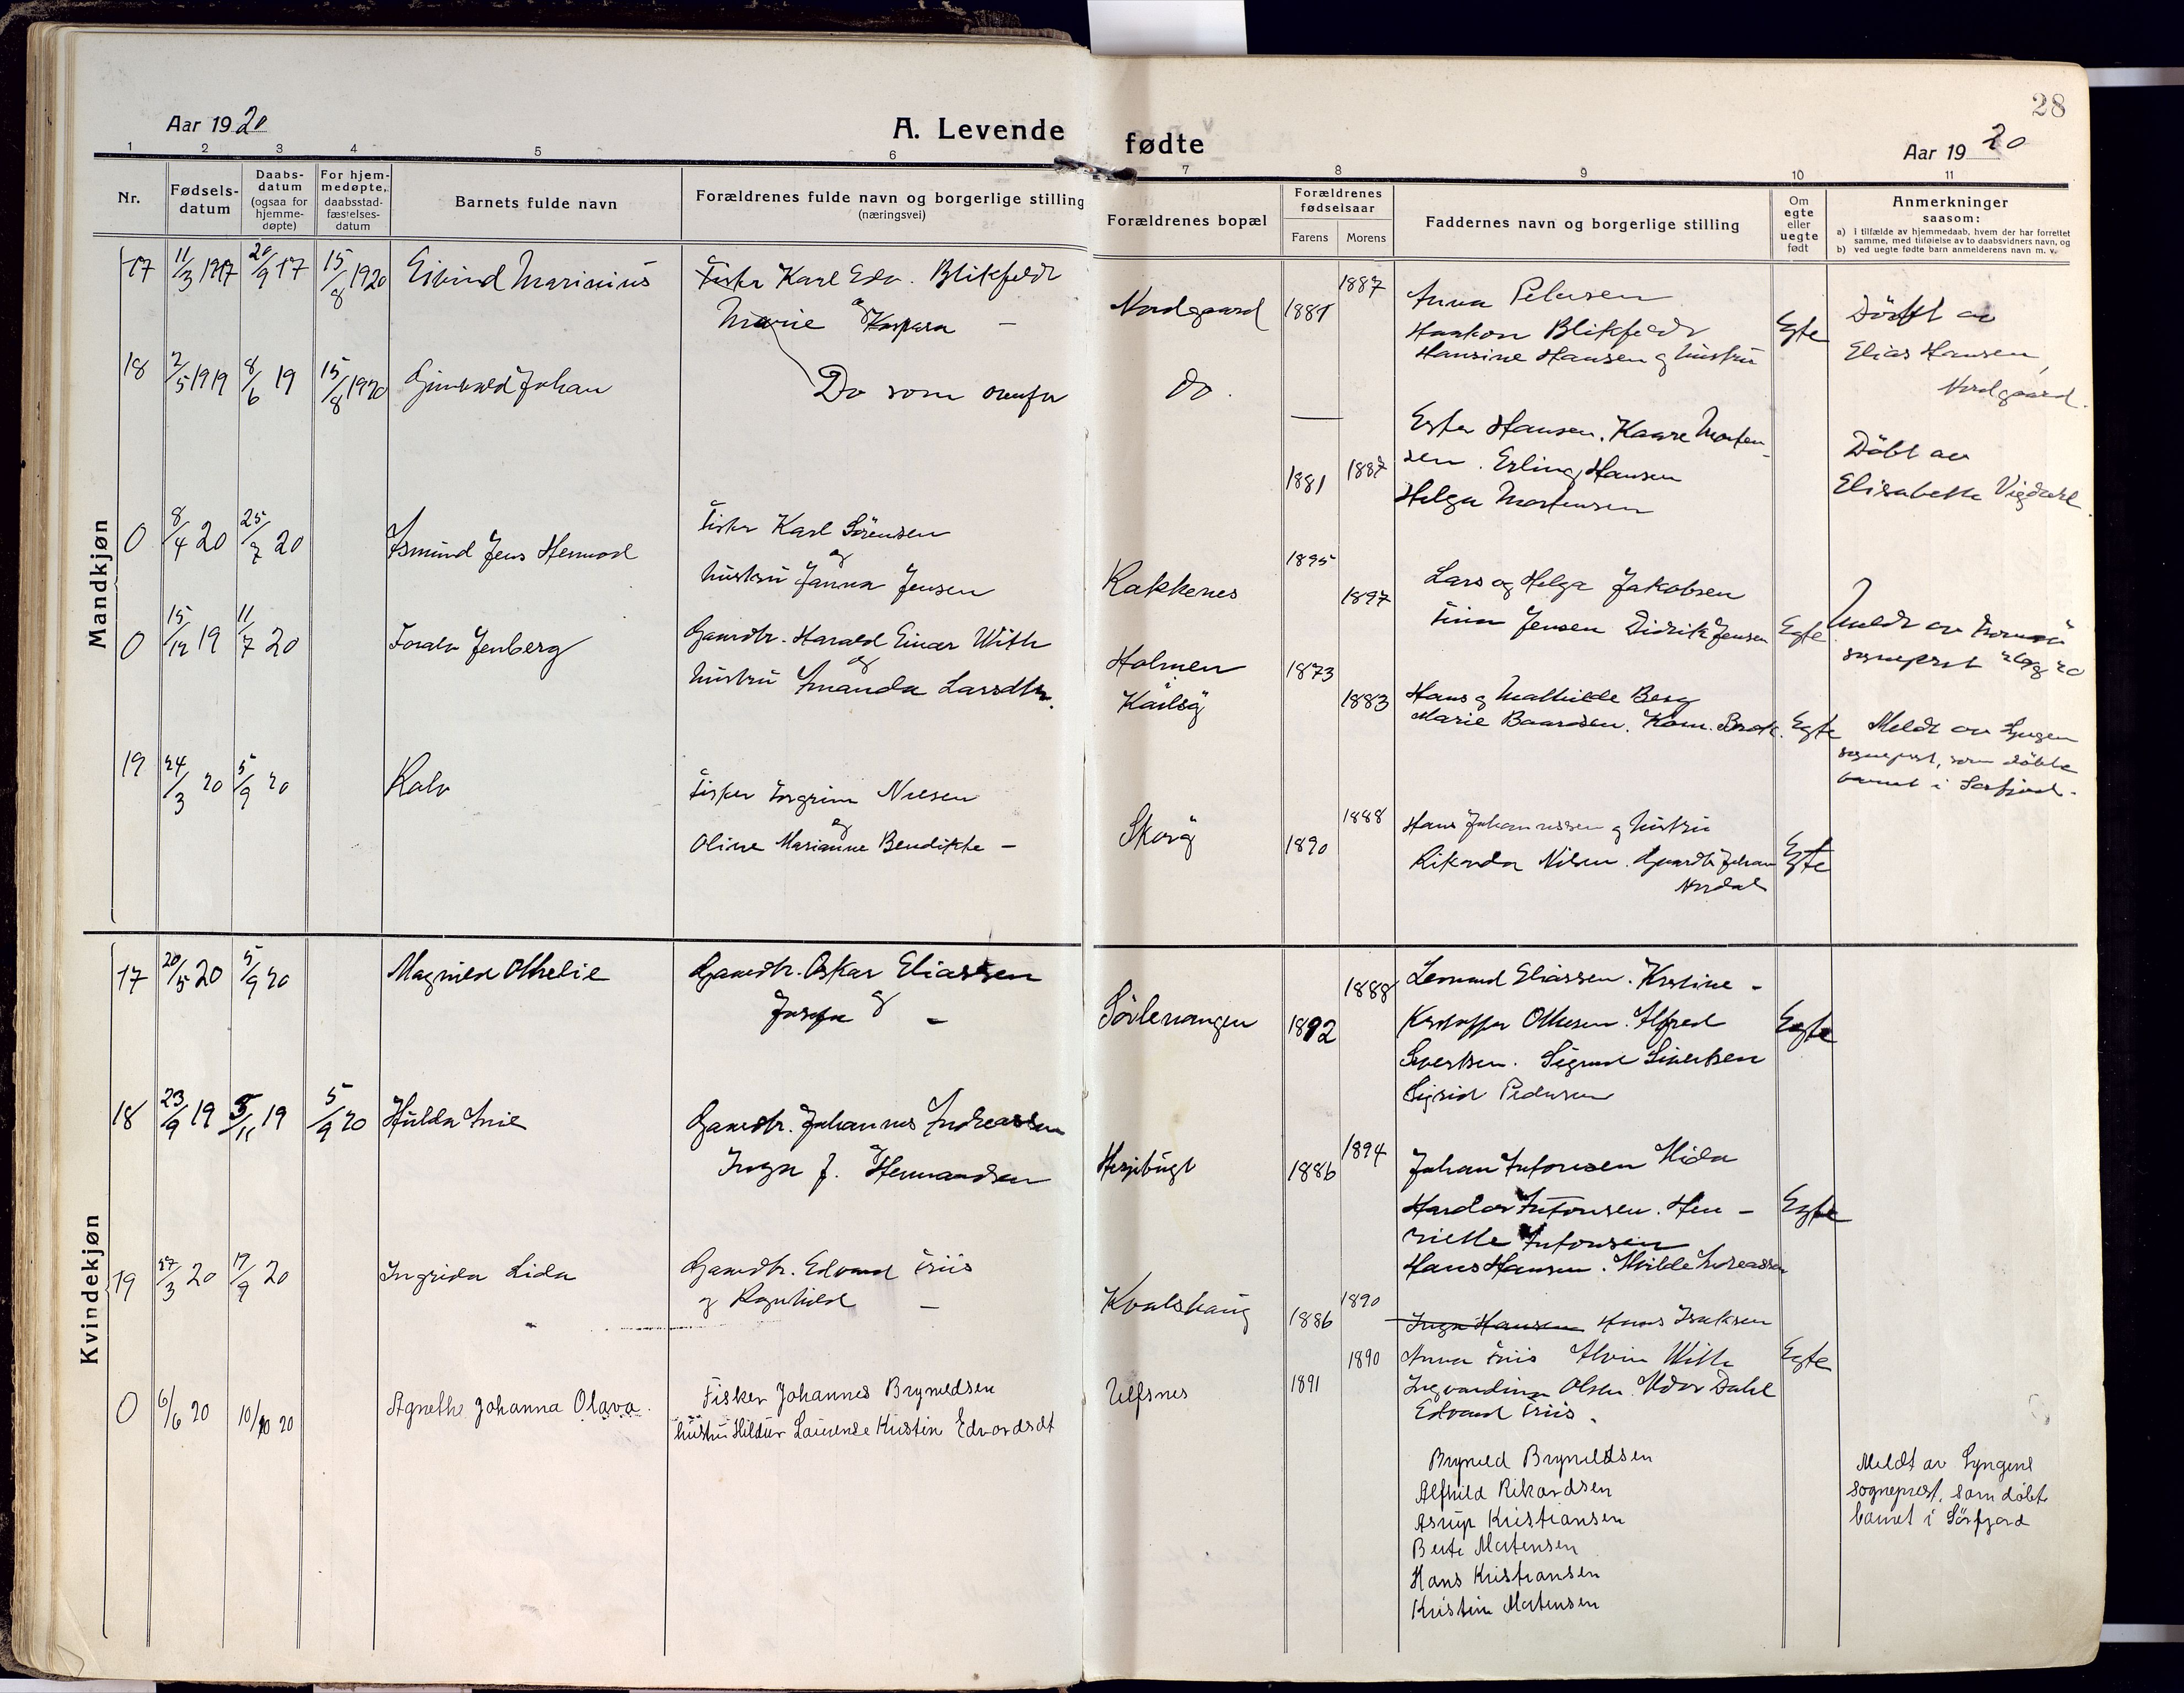 28
Aar 1920
A. Levende fødte
Aar 1920
1 2 3 4 5 6 7 8 9 10 11
Nr.
Fødselsdatum
Daabsdatum (ogsaa for hjemmedøpte)
For hjemmedøpte, daabsstadfæstelsesdatum
Barnets fulde navn
Forældrenes fulde navn og borgerlige stilling
(næringsvei)
Forældrenes bopæl
Forældrenes fødselsaar
Farens Morens
Faddernes navn og borgerlige stilling
Om egte eller uegte født
Anmerkninger
saasom:
a) i tilfælde av hjemmedaab, hvem der har forrettet
samme, med tilføielse av to daabsvidners navn, og
b) ved uegte fødte barn anmelderens navn m. v.
Mandkjøn
17 11/3 1917 20/9 17 15/8 1920 Eivind Marinius Fisker Karl Edv. Blikfeldt
og
Marie Kaspara —
Nordgaard 1881 1887 Anna Pettersen
Haakon Blikfeldt
Hansine Hansen og hustru
Egte
Döbt av
Elias Hansen,
Nordgaard.
18 2/5 1919 8/6 19 15/8 1920 Johan Do som ovenfor
do. 1881 1887
Ester Hansen. Kaare Morten-
sen. Erling Hansen
Helga Mortensen
Döbt av
Elisabeth Vigdahl.
0 8/4 20 25/7 20 Asmund Jens Fisker Karl Sörensen
og
hustru Janna Jensen
Rakkenes 1895 1897 Lars og Helga Jakobsen
Jensen Didrik Jensen Egte
Meldt av Tromsö
sogneprest
0 15/12 19 11/7 20 Toralv Jenberg Gaardbr. Harald Einar With
og
hustru Amanda Larsdtr.
Holmen
Karlsö
1873 1883 Hans og Mathilde Berg
Marie Baardsen. Egte
Meldt av Lyngen
sogneprest, som döbte
barnet i Sörfjord.
19 24/3 20 5/9 20 Rolv Fisker Torgrim Nilsen
og
Oline Marianne Bendikte —
Skorö 1890 1888 Hans Johannessen og hustru
Rikarda Nilsen. Gaardbr Johan
Nordal
Egte
Kvindekjøn
17 20/5 20 5/9 20 Magnild Othelie Gaardbr. Oskar Eliassen
og
—
Sörlenangen 1892 1888 Eliassen. Kristine -
Kristoffer Othesen. Alfred
Sivertsen. Sigrund Sivertsen
Sigrid Pedersen
Egte
18 23/9 19 5/11 19 5/9 20 Hulda Gaardbr. Johannes Andreassen
og
Inga J. Hermandsen
1886 1894 Johan Antonsen Hilda
Antonsen. Hen-
riette Antonsen
Hans Hansen. Andreassen
Egte
19 27/3 20 20 Ingrida Lida Gaardbr. Edvard Friis
og Ragnhild —
Kvalshaug 1886 1890 Inga Hansen Hans Isaksen
1890 Anna Friis Alvin With
Ingvardina Olsen. Dahl
Edvard Friis.
Egte
0 6/6 20 10/10 20 Agnethe Johanna Olava. Fisker Johannes Brynildsen
hustru Hildur Laurense Kristin Edvardsdt
Ulfsnes 1891
Brynild Brynildsen
Alfhild Rikardsen
Astrup Kristiansen
Berte Mortensen
Hans Kristiansen
Kristin Mortensen
Meldt av Lyngens
sogneprest, som döbte
barnet i Sörfjord